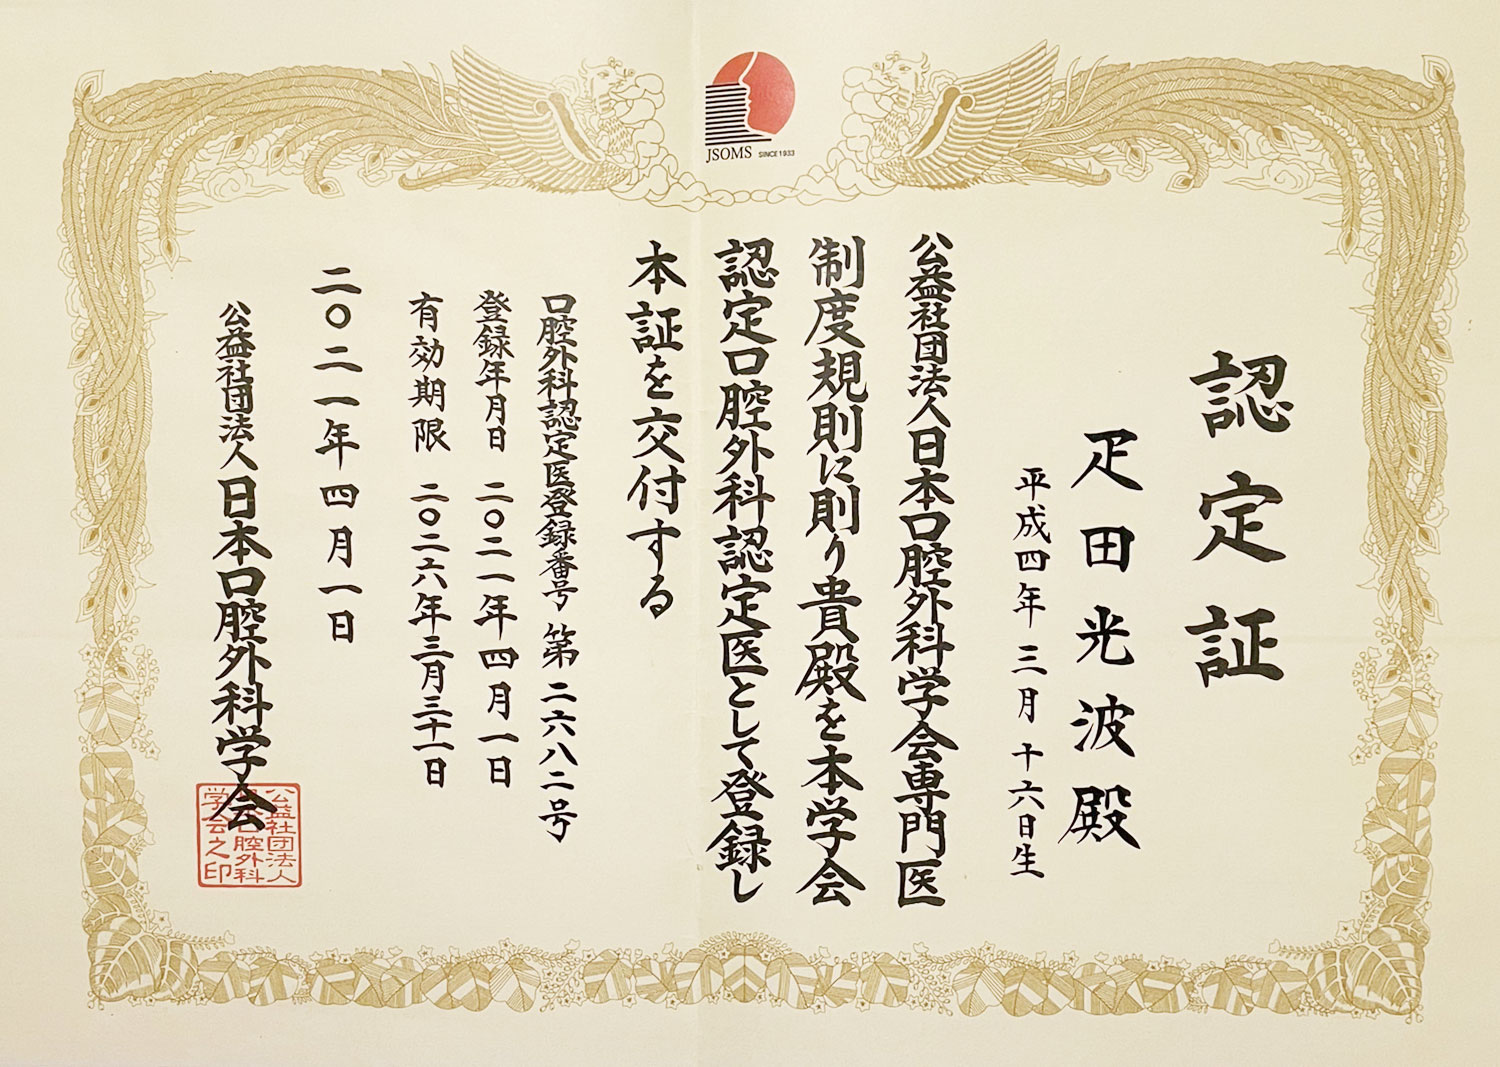 JSOMS SINCE 1933
認定証
疋田光波殿
平成四年三月十六日生
公益社団法人日本口腔外科学会専門医
制度規則に則り貴殿を本学会
認定口腔外科認定医として登録し
本証を交付する
口腔外科認定医登録番号 第二六八二号
登録年月日 二〇二一年四月一日
有効期限 二〇二六年三月三十一日
二〇二一年四月一日
公益社団法人日本口腔外科学会
公益社団法人
日本口腔外科
学会之印